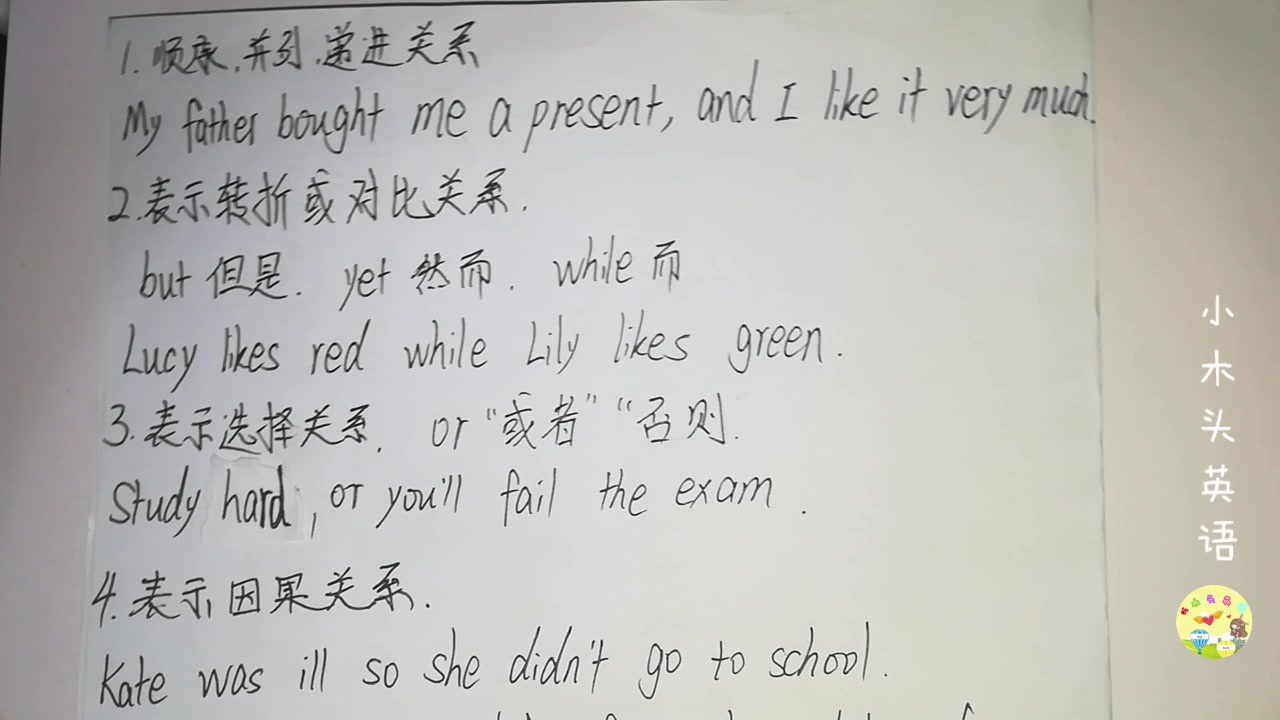 1. 顺序.并列.递进关系
My father bought me a present, and I like it very much.
2.表示转折或对比关系.
but 但是. yet 然而. while 而
Lucy likes red while Lily likes green.
3.表示选择关系. or "或者" "否则.
Study hard, or you'll fail the exam.
4.表示因果关系.
Kate was ill so she didn't go to school.
小木头英语